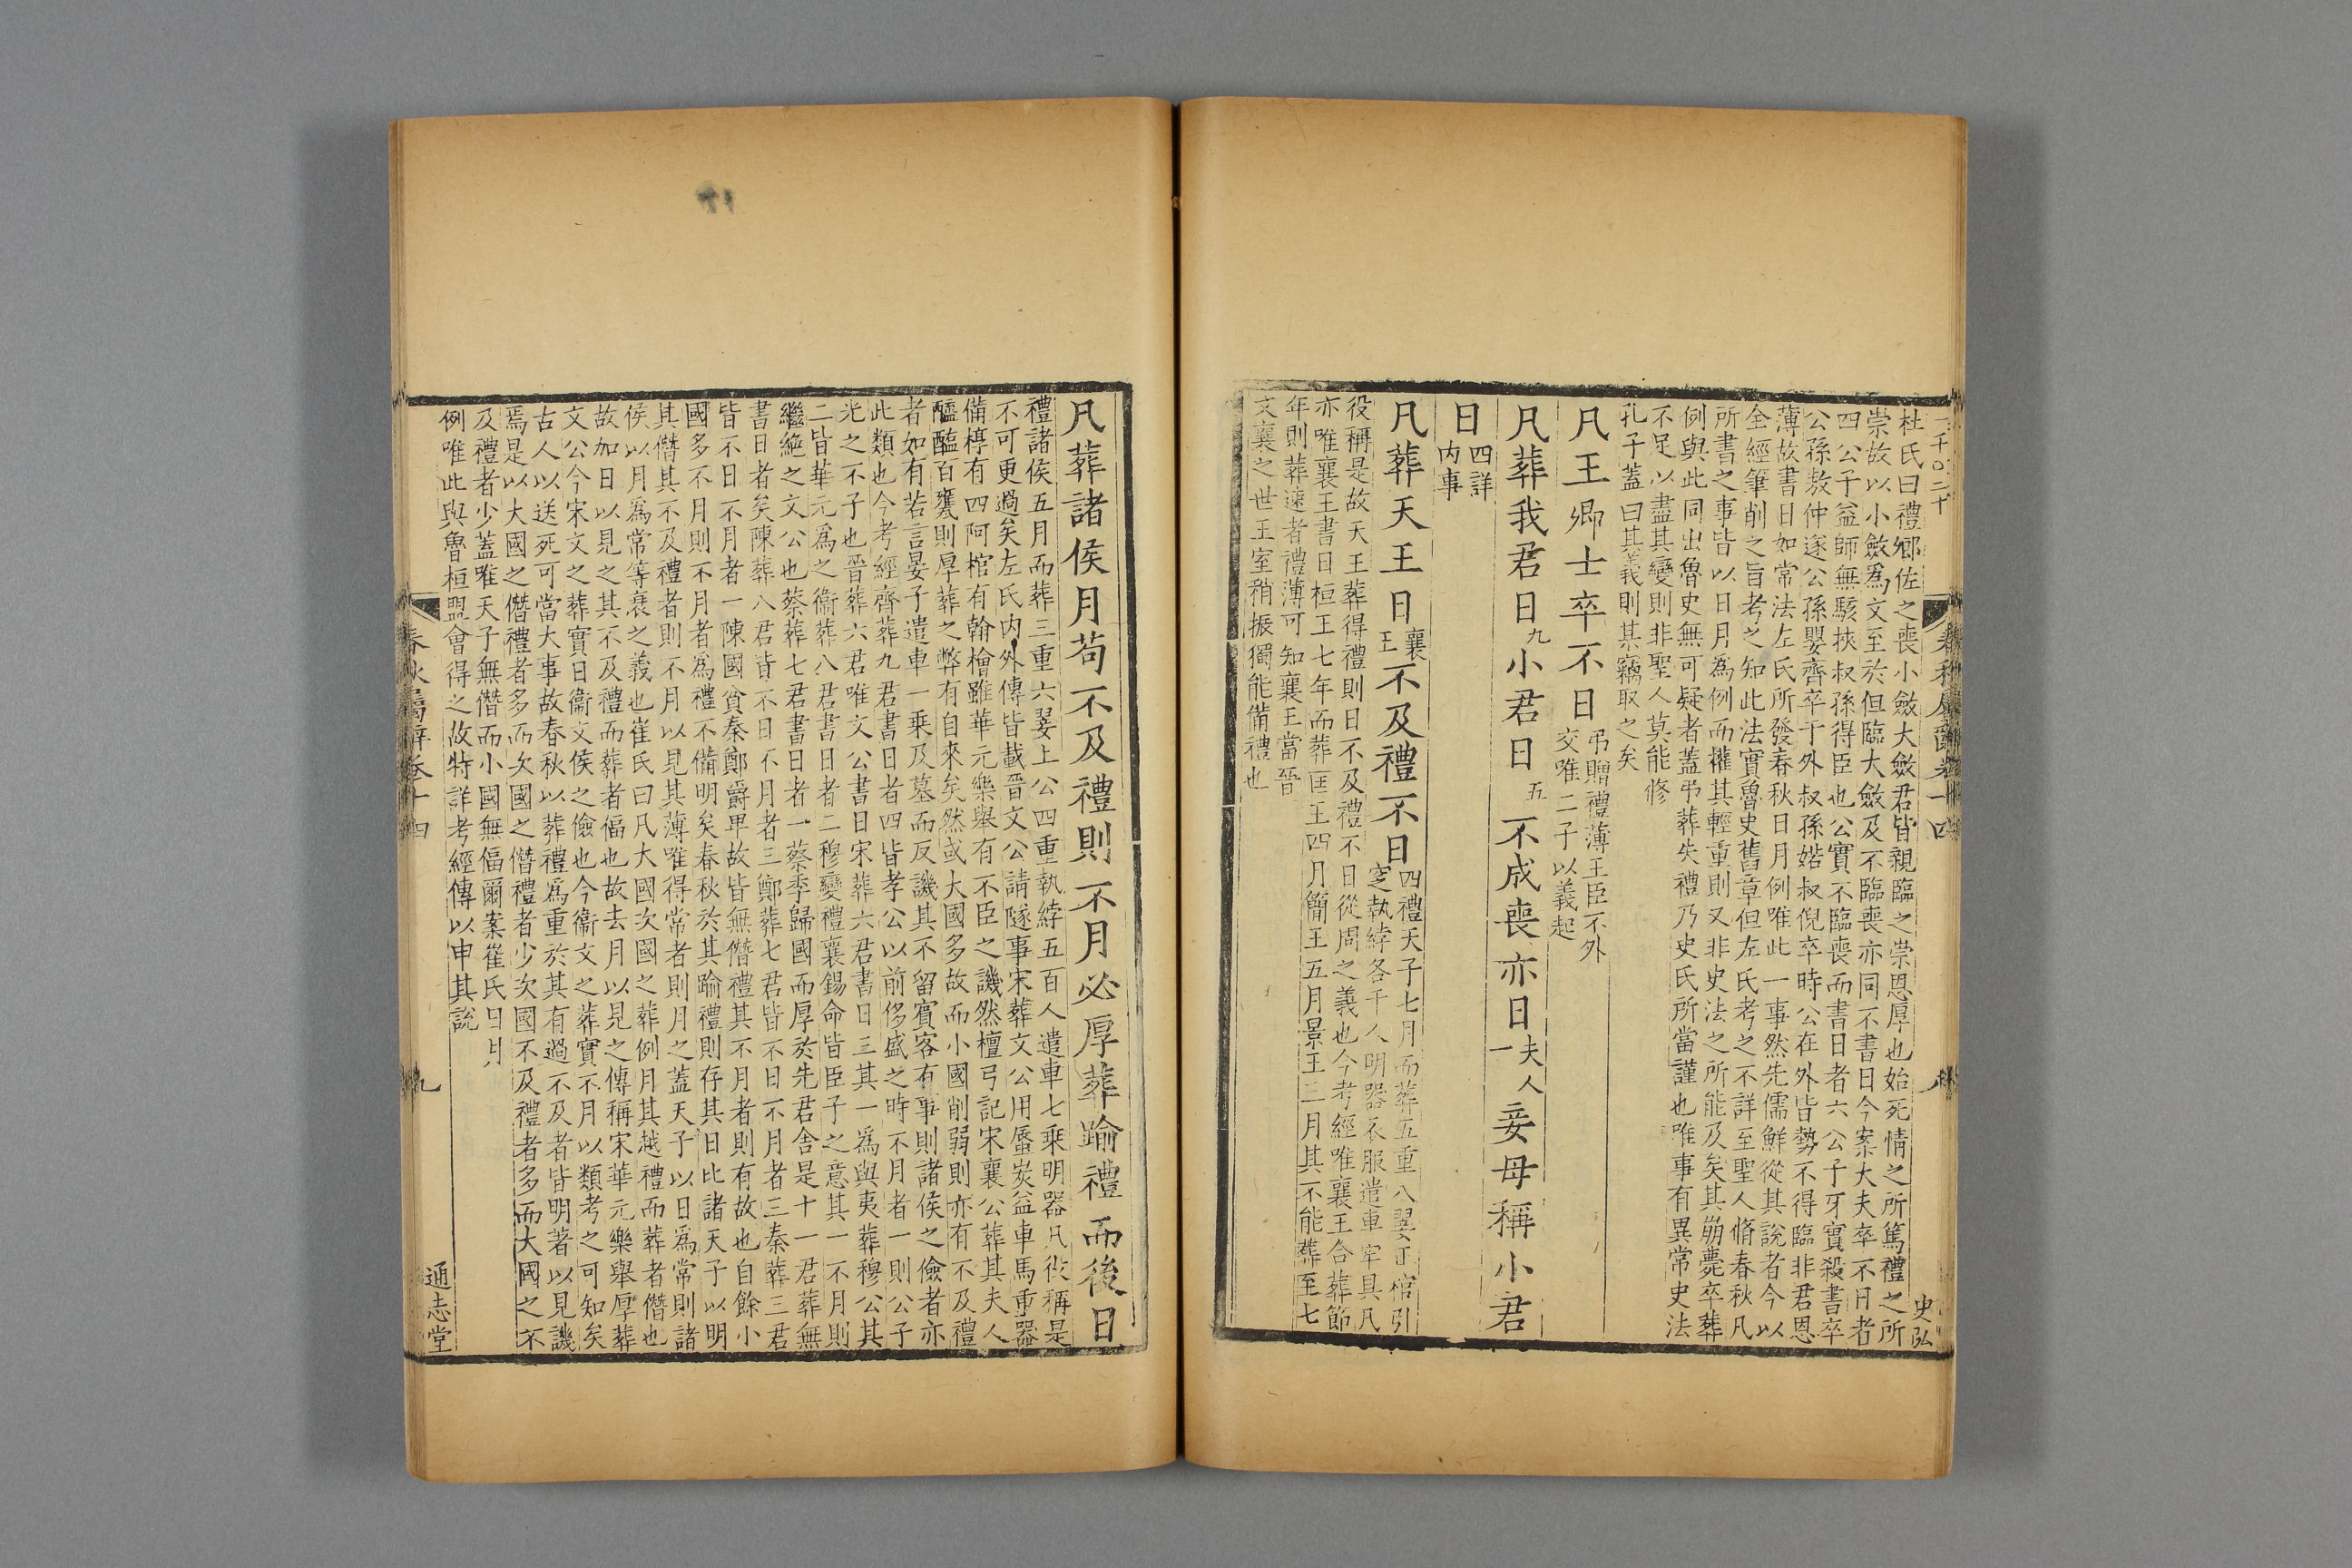 一千〇二十
春秋屬辭卷十四
八
史弘
杜氏曰禮卿佐之喪小斂大斂君皆親臨之崇恩厚也始死情之所篤禮之所
崇故以小斂爲文至於但臨大斂及不臨喪亦同不書日今案大夫卒不日者
四公子益師無駭挾叔孫得臣也公實不臨喪而書日者六公子牙實殺書卒
公孫敖仲遂公孫嬰齊卒于外叔孫婼叔倪卒時公在外皆勢不得臨非君恩
薄故書日如常法左氏所發春秋日月例唯此一事然先儒鮮從其說者今以
全經筆削之旨考之知此法實魯史舊章但左氏考之不詳至聖人脩春秋凡
所書之事皆以日月爲例而權其輕重則又非史法之所能及矣其崩薨卒葬
例與此同出魯史無可疑者蓋弔葬失禮乃史氏所當謹也唯事有異常史法
不足以盡其變則非聖人莫能修
孔子蓋曰其義則其竊取之矣
凡王卿士卒不日弔贈禮薄王臣不外
交唯二子以義起
凡葬我君日九小君日五不成喪亦日夫人
一妾母稱小君
日四詳
内事
凡葬天王日襄
王不及禮不日四禮天子七月而葬五重八翣正棺引
窆執綍各千人明器衣服遣車牢具凡
役稱是故天王葬得禮則日不及禮不日從周之義也今考經唯襄王合葬節
亦唯襄王書日桓王七年而葬匡王四月簡王五月景王三月其不能葬至七
年則葬速者禮薄可知襄王當晉
文襄之世王室稍振獨能備禮也
凡葬諸侯月苟不及禮則不月必厚葬踰禮而後日
禮諸侯五月而葬三重六翣上公四重執綍五百人遣車七乘明器凡役稱是
不可更過矣左氏内外傳皆載晉文公請隧事宋葬文公用蜃炭益車馬重器
備椁有四阿棺有翰檜雖華元樂舉有不臣之譏然檀弓記宋襄公葬其夫人
醯醢百甕則厚葬之弊有自來矣然或大國多故而小國削弱則亦有不及禮
者如有若言晏子遣車一乘及墓而反譏其不留賓客有事則諸侯之儉者亦
此類也今考經齊葬九君書日者四皆孝公以前侈盛之時不月者一則公子
光之不子也晉葬六君唯文公書日宋葬六君書日三其一爲與夷葬穆公其
二皆華元爲之衞葬八君書日者二穆變禮襄錫命皆臣子之意其一不月則
繼絶之文公也蔡葬七君書日者一蔡季歸國而厚於先君舍是十一君葬無
書日者矣陳葬八君皆不日不月者三鄭葬七君皆不日不月者三秦葬三君
皆不日不月者一陳國貧秦鄭爵卑故皆無僭禮其不月者則有故也自餘小
國多不月則不月者爲禮不備明矣春秋於其踰禮則存其日比諸天子以明
其僭其不及禮者則不月以見其薄唯得常者則月之蓋天子以日爲常則諸
侯以月爲常等衰之義也崔氏曰凡大國次國之葬例月其越禮而葬者僭也
故加日以見之其不及禮而葬者偪也故去月以見之傳稱宋華元樂舉厚葬
文公今宋文之葬實日衞文侯之儉也今衞文之葬實不月以類考之可知矣
古人以送死可當大事故春秋以葬禮爲重於其有過不及者皆明著以見譏
焉是以大國之僭禮者多而次國之僭禮者少次國不及禮者多而大國之不
及禮者少蓋唯天子無僭而小國無偪爾案崔氏日月
例唯此與魯桓盟會得之故特詳考經傳以申其說
春秋屬辭卷十四
九
通志堂